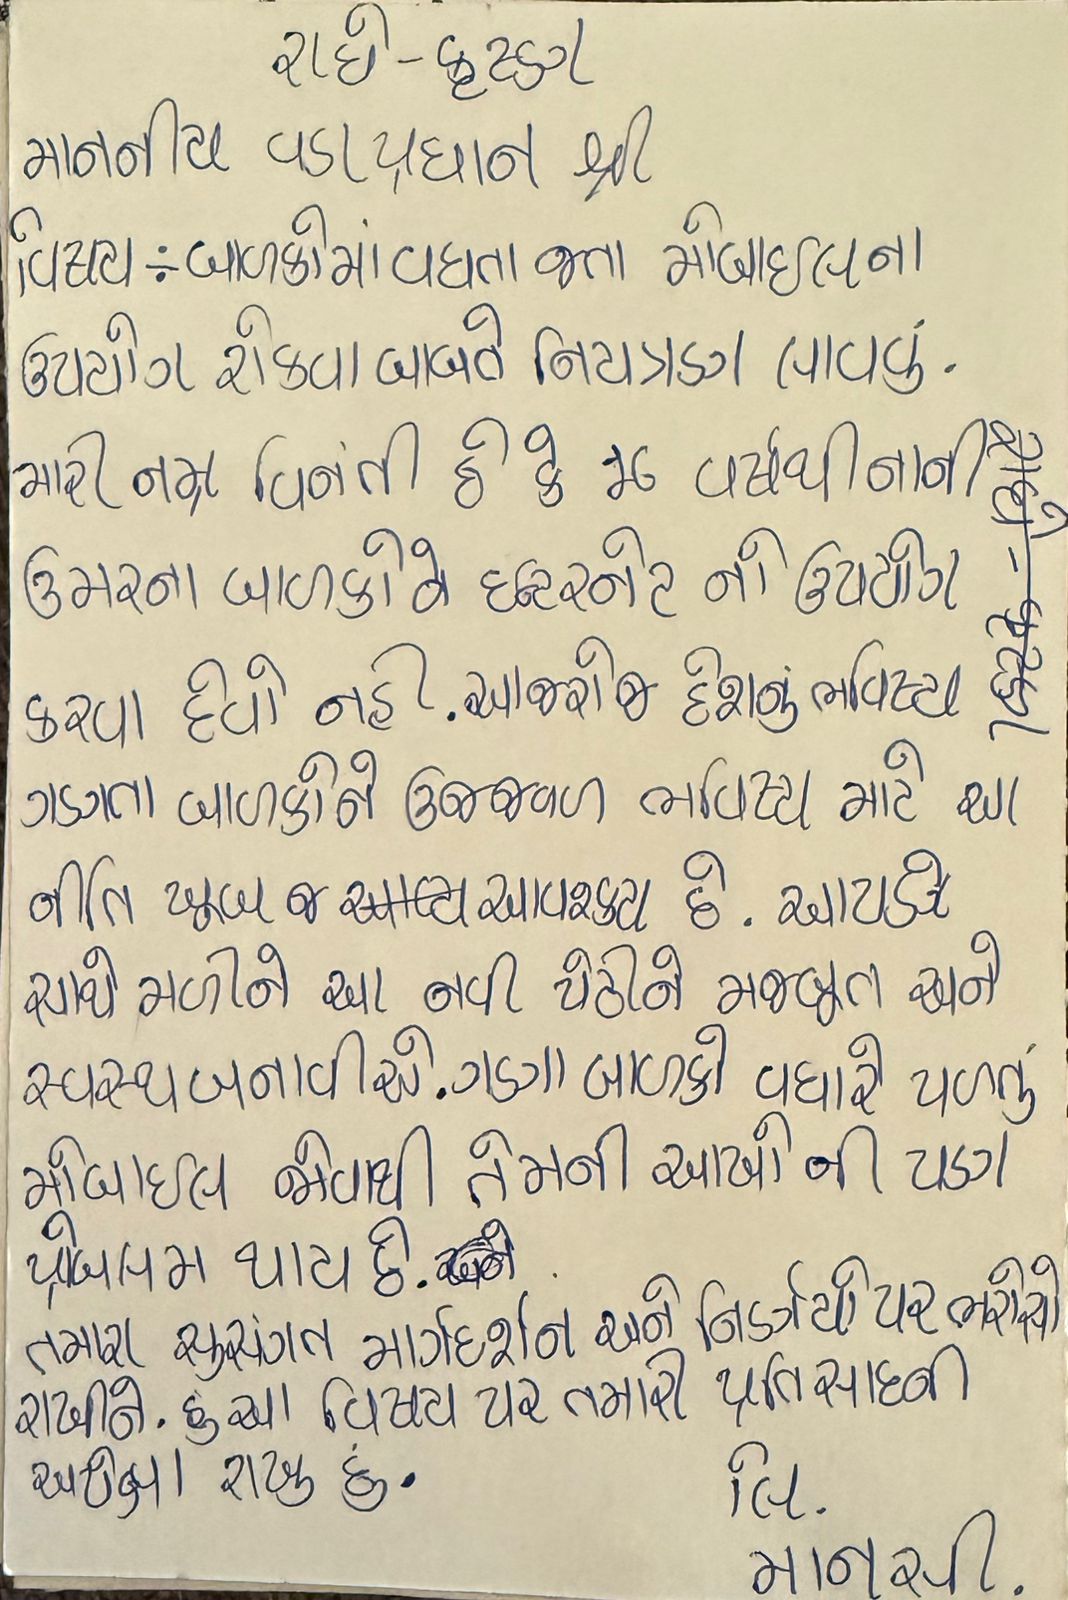 રાધે - કૃષ્ણ
માનનીય વડાપ્રધાન શ્રી
વિષય ÷ બાળકોમાં વધતા જતા મોબાઈલના
ઉપયોગ રોકવા બાબતે નિયત્રણ લાવવું.
મારી નમ્ર વિનંતી છે કે ૧૬ વર્ષથી નાની
ઉમરના બાળકોને ઇન્ટરનેટ નો ઉપયોગ
કરવા દેવો નહી. આજરોજ દેશનું ભવિષ્ય
ગણતા બાળકોને ઉજ્જવળ ભવિષ્ય માટે આ
નીતિ ખૂબ જ આવશ્કય છે. આપણે
સાથે મળીને આ નવી પેઢીને મજબૂત અને
સ્વસ્થ બનાવીએ. ગણા બાળકો વધારે પળતું
મોબાઈલ જોવાથી તેમની આખોની પણ
પ્રોબલમ થાય છે.
તમારા સુસંગત માર્ગદર્શન અને નિર્ણયો પર ભરોસો
રાખીને. હું આ વિષય પર તમારી પ્રતિસાદની
અપેક્ષા રાખુ છું.
લિ.
માનસી.
રાધે - કૃષ્ણ